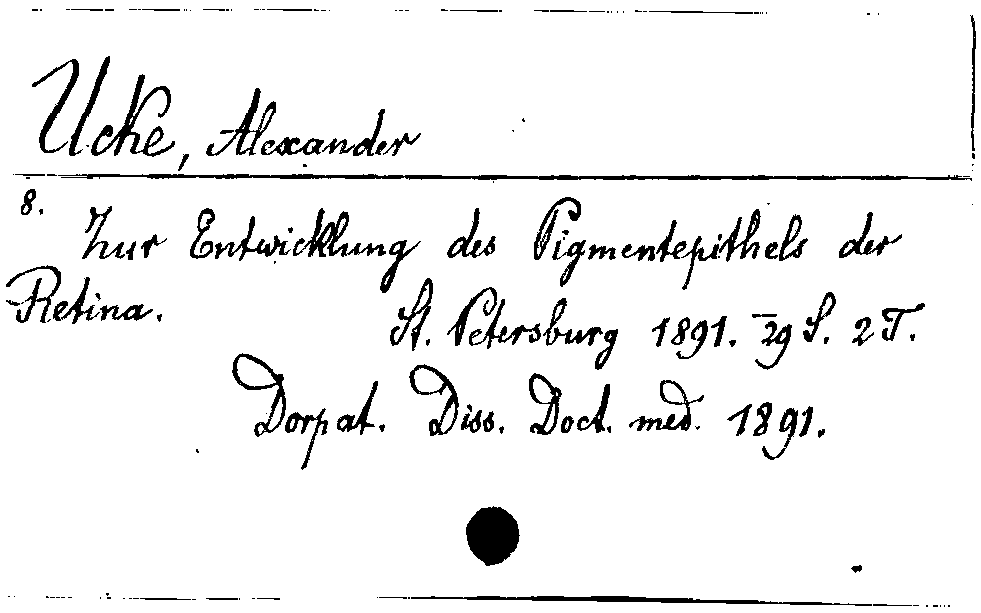 Ucke, Alexander
8.
Zur Entwicklung des Pigmentepithels der
Retina.
St. Petersburg 1891. 29 S. 2 T.
Dorpat. Diss. Doct. med. 1891.